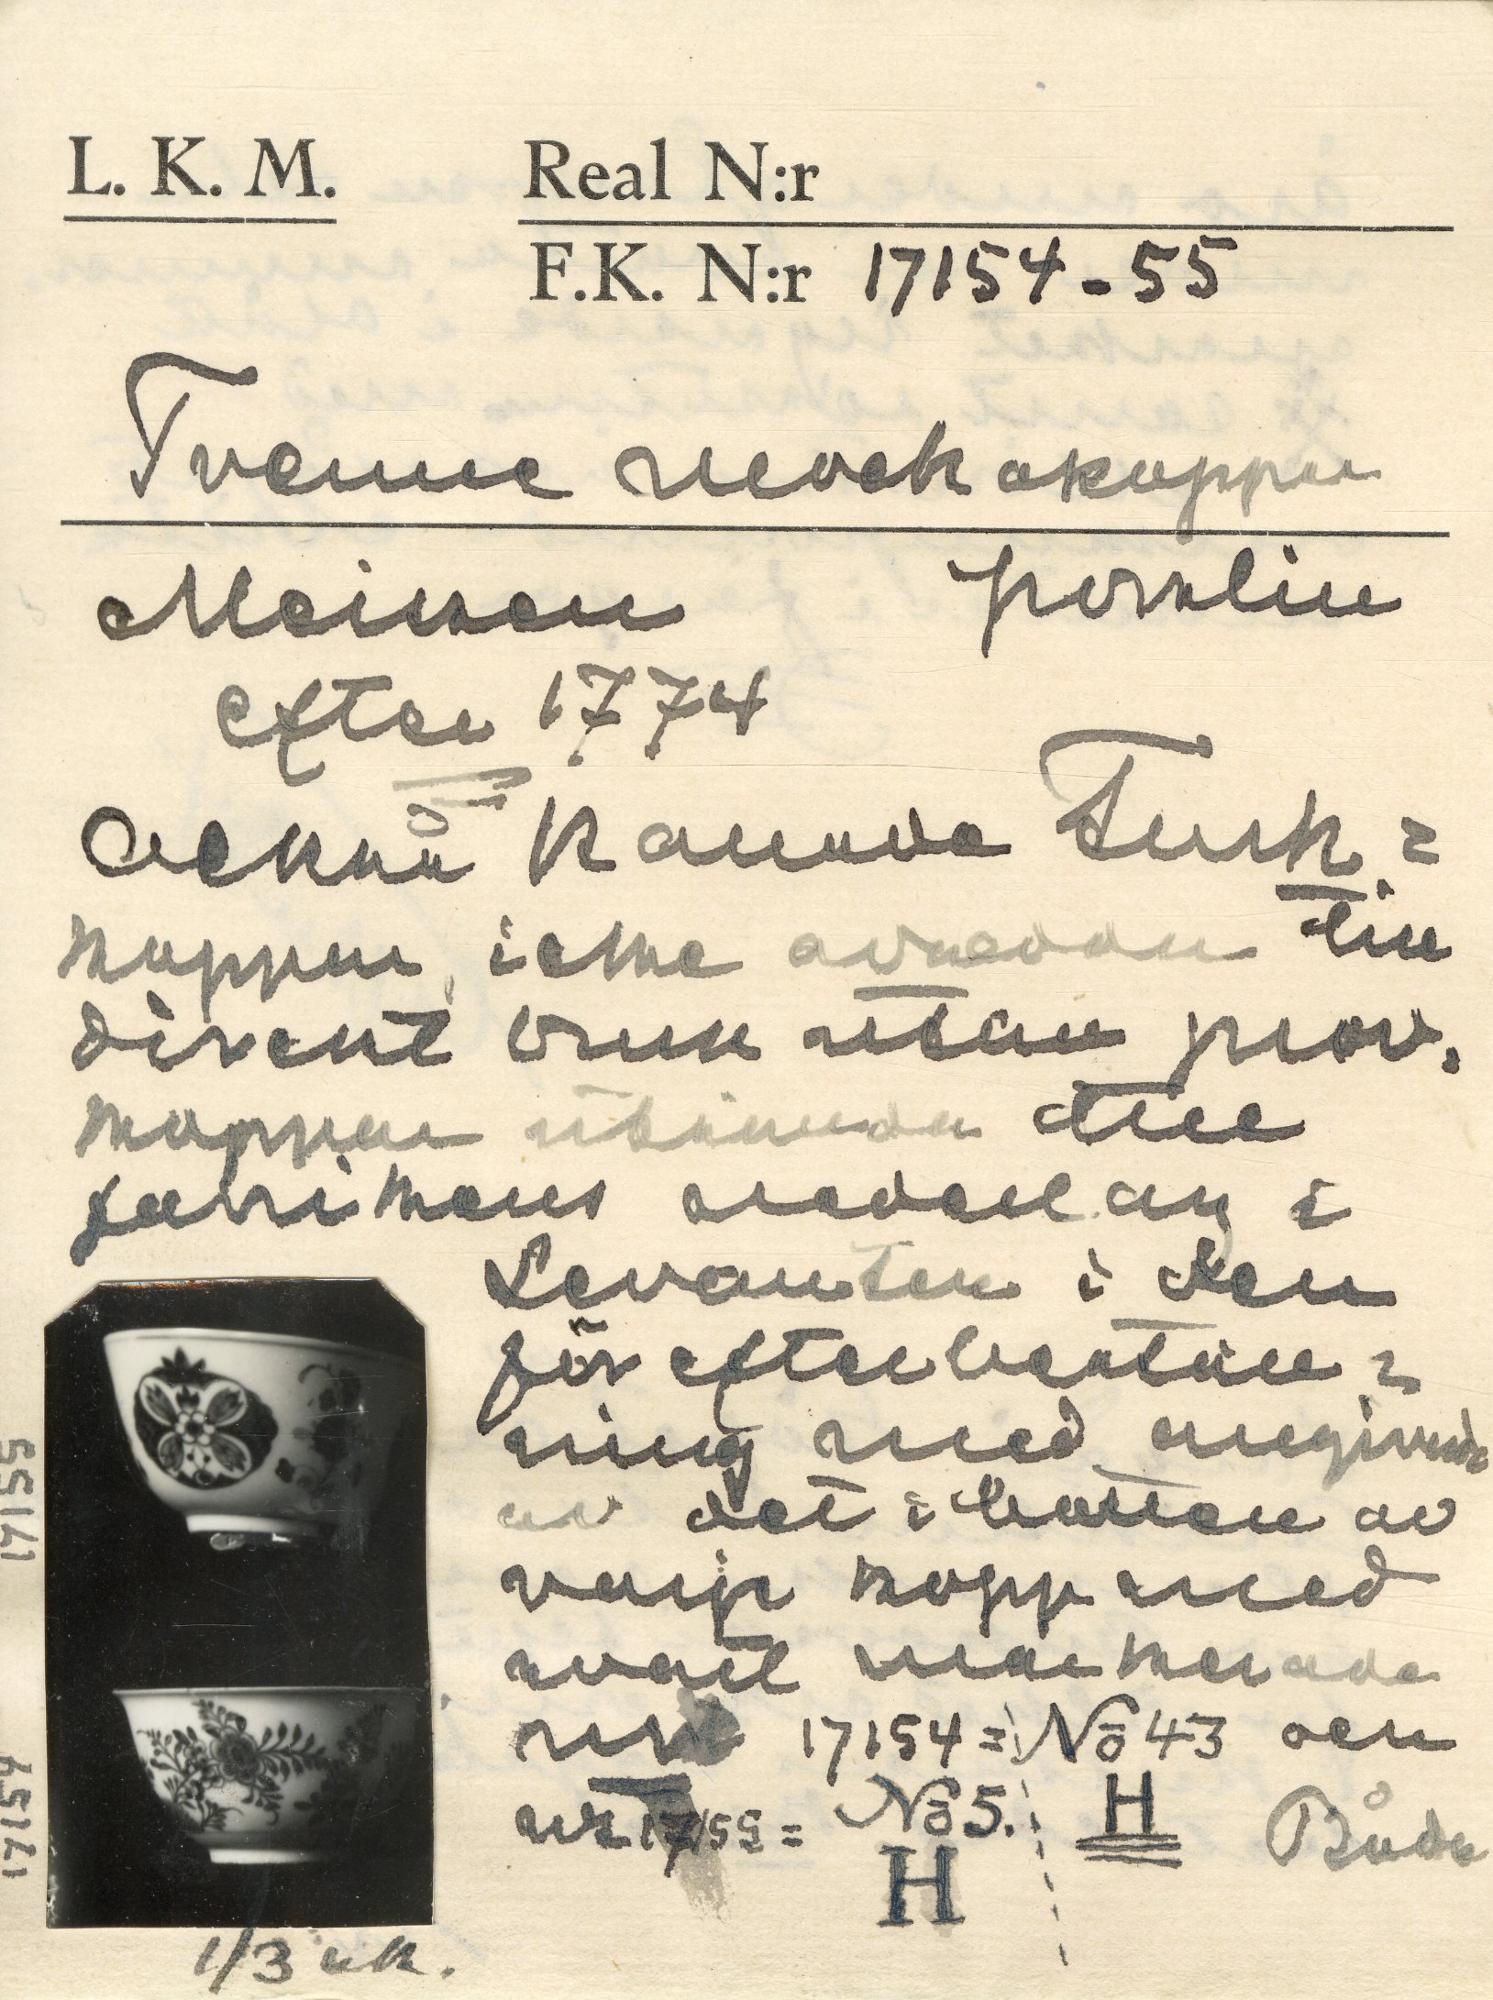 L. K. M.
Real N:r
F.K. N:r 17154-55
Tvenne mockakoppar
Meissen porslin
efter 1774
också kallade Turk=
koppar, icke avsedda till
direkt bruk utan prov.
koppar utsända till
fabrikens nederlag i
Levanten i den
för efterbeställ=
ning med angivande
av det i botten av
varje kopp med
svart markerade
17154 = No 43 och
nr 17155 = No 5. H Båda
H
17155
17154
1/3 stk.